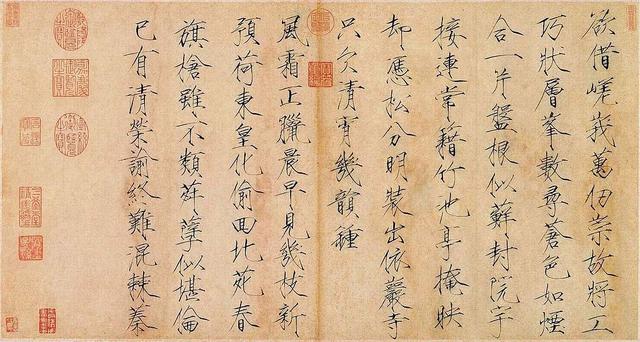 欲借嵯峨萬仞崇故將工
巧狀層峯數尋蒼色如煙
合一片盤根似蘚封院宇
接連常藉竹池亭掩映
却憑松分明裝出依巖寺
只欠清宵幾韻鍾
風霜正臘晨早見幾枝新
預荷東皇化偷回北苑春
旗槍雖不類荈孽似堪倫
已有清榮諭終難混棘蓁